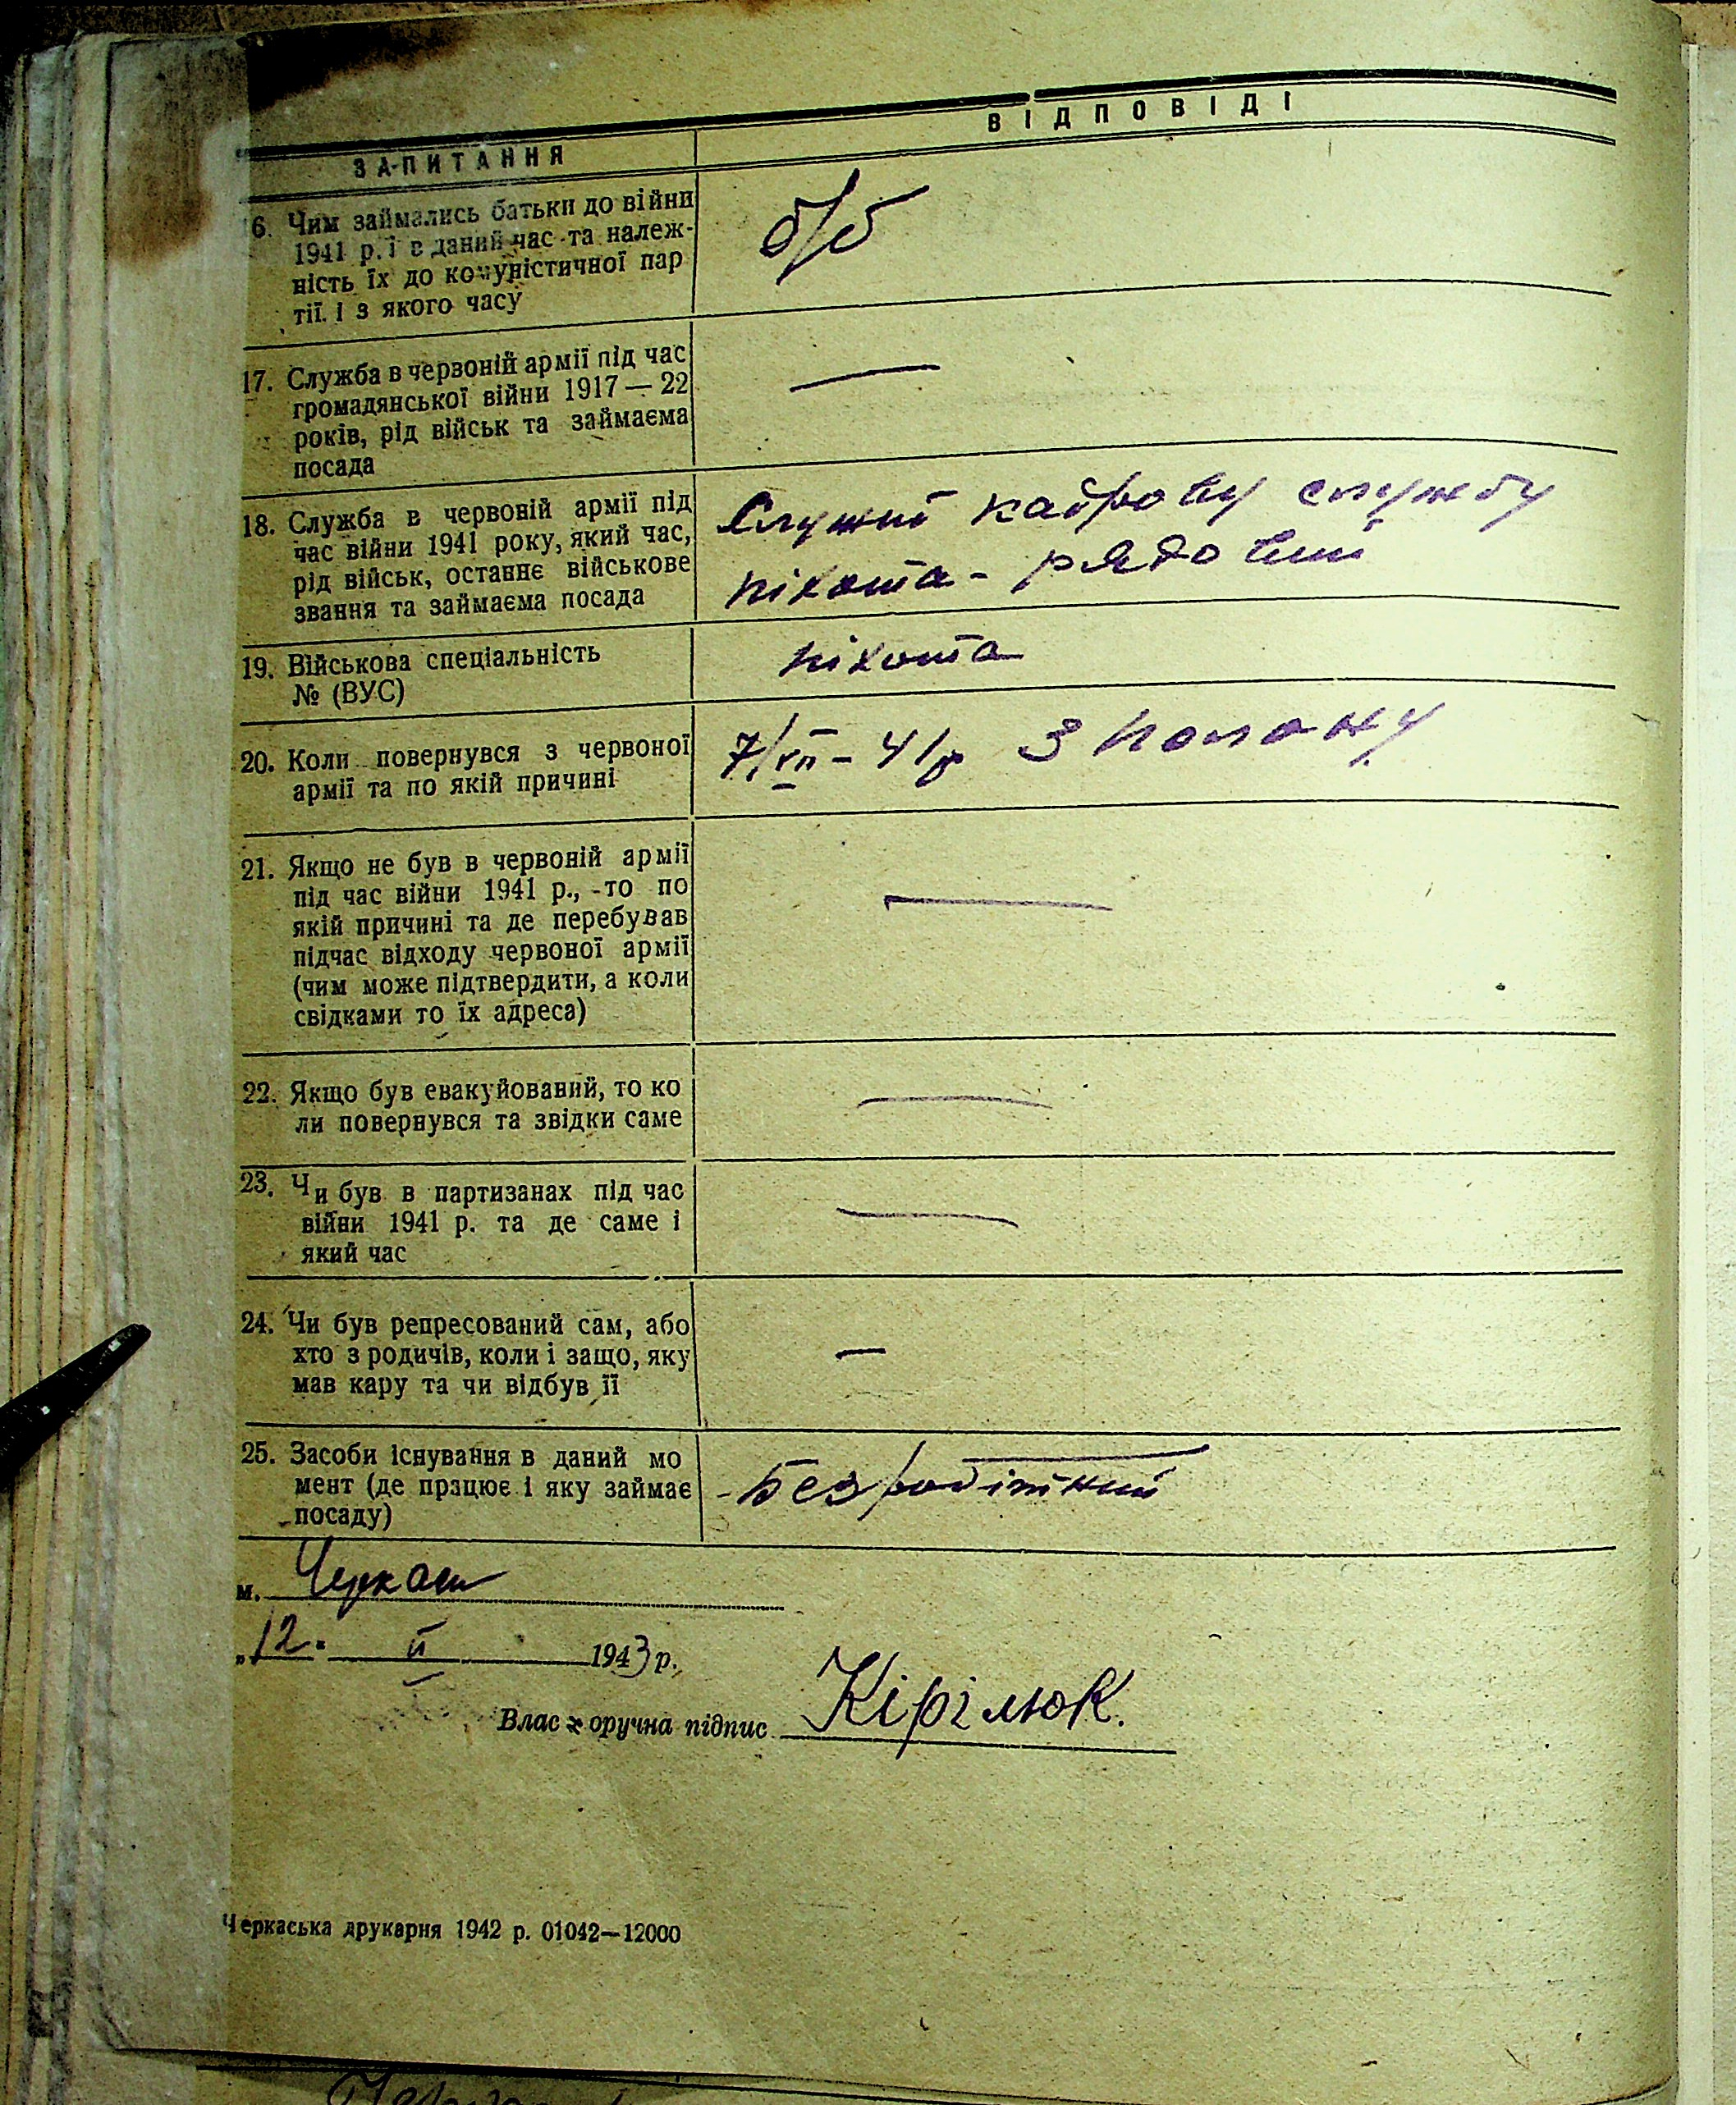 ЗАПИТАННЯ
ВІДПОВІДІ
6. Чим займались батьки до війни
1941 р. і в даний час та належ-
ність їх до комуністичної пар
тії. І з якого часу
б/б
17. Служба в червоній армії під час
громадянської війни 1917 — 22
років, рід військ та займаєма
посада
—
18. Служба в червоній армії під
час війни 1941 року, який час,
рід військ, останнє військове
звання та займаєма посада
Служив кадрову службу
піхота - рядовий
19. Військова спеціальність
№ (ВУС)
піхота
20. Коли повернувся з червоної
армії та по якій причині
7/VII - 41р З полону
21. Якщо не був в червоній армії
під час війни 1941 р., -то по
якій причині та де перебував
підчас відходу червоної армії
(чим може підтвердити, а коли
свідками то їх адреса)
—
22. Якщо був евакуйований, то ко
ли повернувся та звідки саме
—
23. Чи був в партизанах під час
війни 1941 р. та де саме і
який час
—
24. Чи був репресований сам, або
хто з родичів, коли і защо, яку
мав кару та чи відбув її
—
25. Засоби існування в даний мо
мент (де працює і яку займає
посаду)
- Безробітний
м. Черкаси
„12. II 1943 р.
Власноручна підпис Кірілюк.
Черкаська друкарня 1942 р. 01042—12000